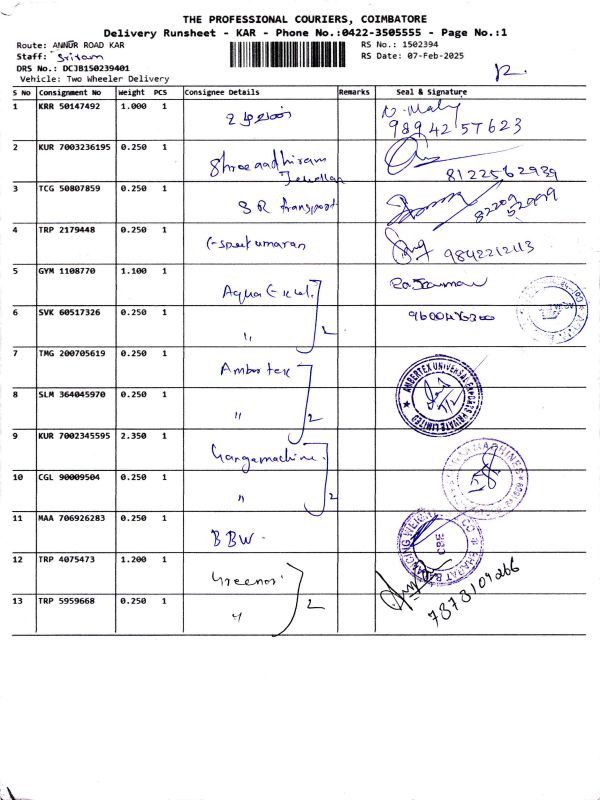 THE PROFESSIONAL COURIERS, COIMBATORE
Delivery Runsheet - KAR - Phone No.:0422-3505555 - Page No.:1
Route: ANNUR ROAD KAR
RS No.: 1502394
Staff: Sriram
RS Date: 07-Feb-2025
DRS No.: DCJB150239401
Vehicle: Two Wheeler Delivery
S No Consignment No Weight PCS Consignee Details Remarks Seal & Signature
1 KRR 50147492 1.000 1
2 KUR 7003236195 0.250 1 Shree aadhiram
3 TCG 50807859 0.250 1 SR transport
4 TRP 2179448 0.250 1 9842212113
5 GYM 1108770 1.100 1 Aqua
6 SVK 60517326 0.250 1 "
2
7 TMG 200705619 0.250 1 Ambertex
AMBERTEX UNIVERSAL EXPORTS PRIVATE LIMITED
8 SLM 364045970 0.250 1 "
2
9 KUR 7002345595 2.350 1 Gangamachine
10 CGL 90009504 0.250 1 "
2
11 MAA 706926283 0.250 1 BBW
CBE
12 TRP 4075473 1.200 1
7373109266
13 TRP 5959668 0.250 1 "
2